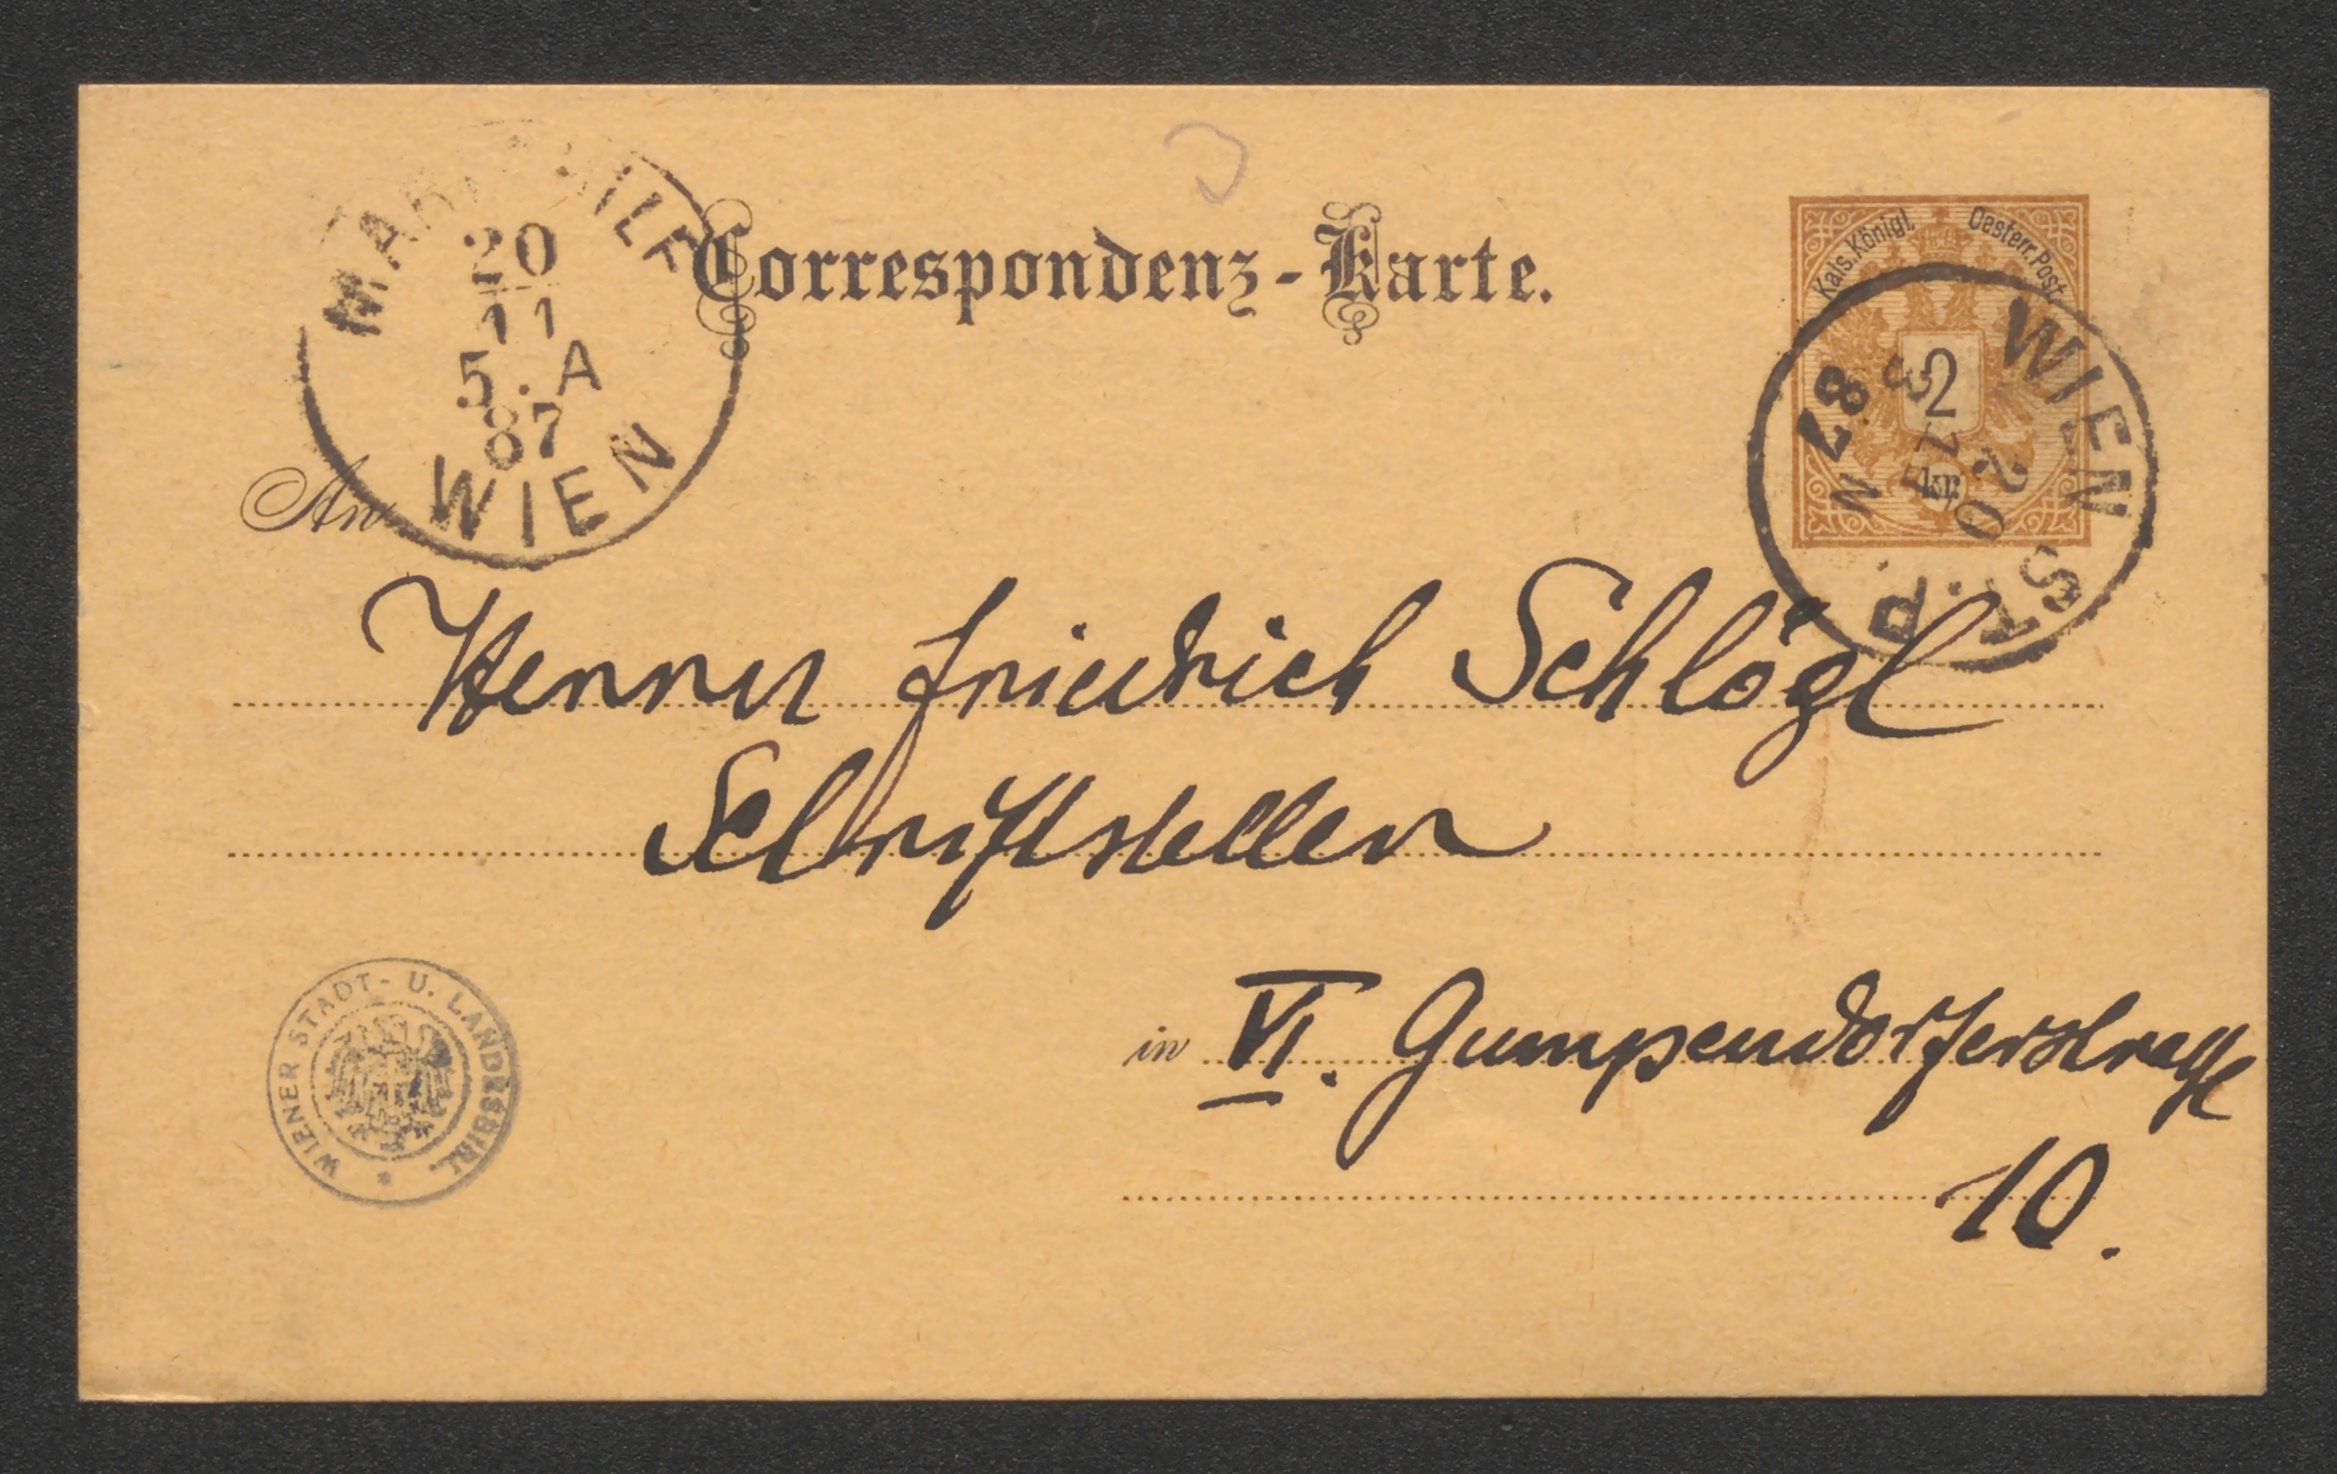 MARIAHILF
20
11
5.A
87
WIEN
Correspondenz-Karte.
Kais.Königl. Oesterr.Post.
2
kr.
WIEN ST.P.
20
3
87
N
An
Herrn Friedrich Schlögl
Schriftsteller
in VI. Gumpendorferstrasse
10.
WIENER STADT- U. LANDESBIBL.